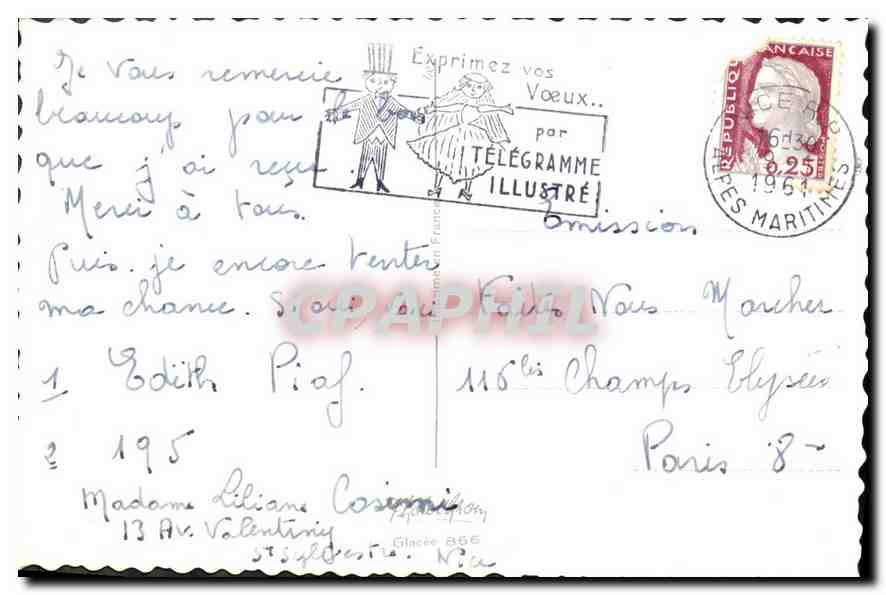 Je vous remercie
beaucoup pour le bon
que j'ai reçu.
Merci à tous.
Puis-je encore tenter
ma chance. Si oui, voici
1 Edith Piaf.
2 195
Madame Liliane
13 Av. Valentiny
St Sylvestre. Nice
Exprimez vos
Vœux..
par
TÉLÉGRAMME
ILLUSTRÉ
RÉPUBLIQUE FRANÇAISE
0,25
NICE R.P.
16H30
1961
ALPES MARITIMES
Emission
Faites Nous Marcher
116 bis Champs Elysées
Paris 8
en France
CPAPHIL
Glacée 866